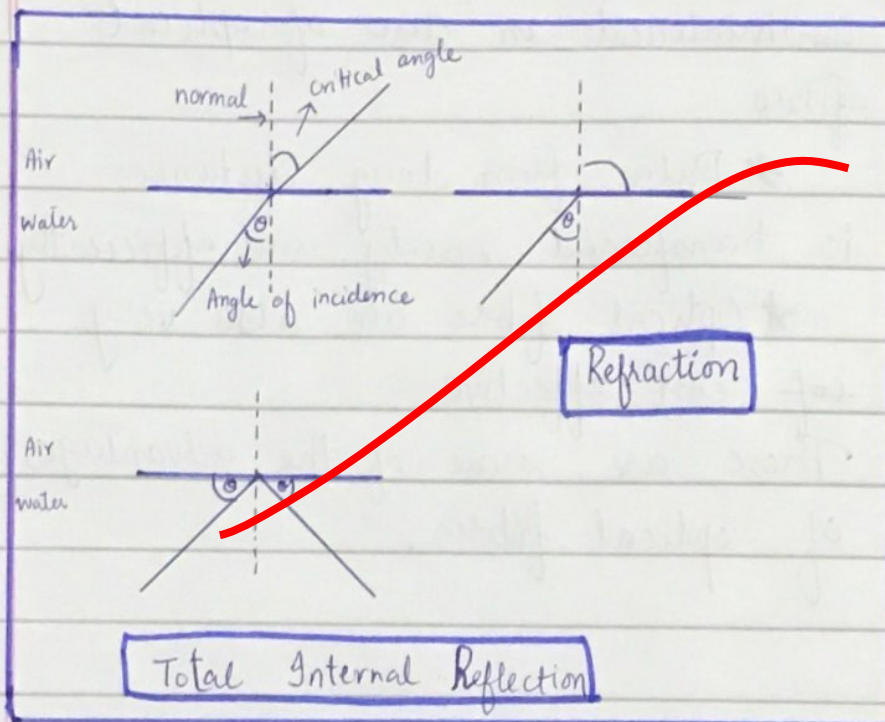 critical angle
normal
Air
Water
θ
θ
Angle of incidence
Refraction
Air
water
θ
θ
Total Internal Reflection